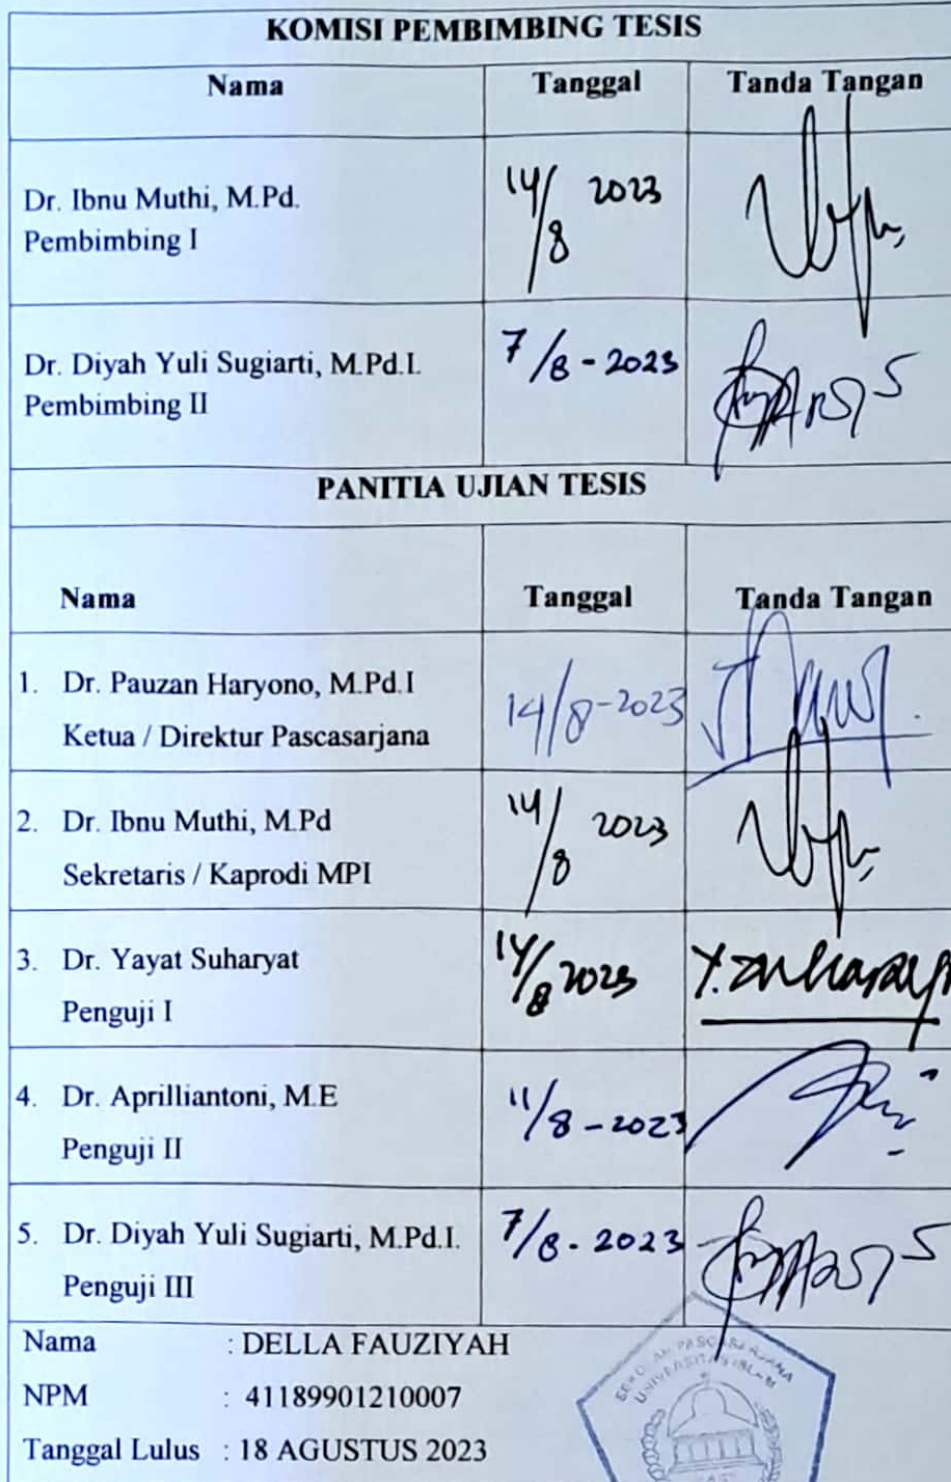 KOMISI PEMBIMBING TESIS
Nama Tanggal Tanda Tangan
Dr. Ibnu Muthi, M.Pd.
Pembimbing I
14/8 2023
Dr. Diyah Yuli Sugiarti, M.Pd.I.
Pembimbing II
7/8-2023
PANITIA UJIAN TESIS
Nama Tanggal Tanda Tangan
1. Dr. Pauzan Haryono, M.Pd.I
Ketua / Direktur Pascasarjana
14/8-2023
2. Dr. Ibnu Muthi, M.Pd
Sekretaris / Kaprodi MPI
14/8 2023
3. Dr. Yayat Suharyat
Penguji I
14/8 2023
4. Dr. Aprilliantoni, M.E
Penguji II
11/8-2023
5. Dr. Diyah Yuli Sugiarti, M.Pd.I.
Penguji III
7/8-2023
Nama : DELLA FAUZIYAH
NPM : 41189901210007
Tanggal Lulus : 18 AGUSTUS 2023
SEKOLAH PASCASARJANA
UNIVERSITAS ISLAM